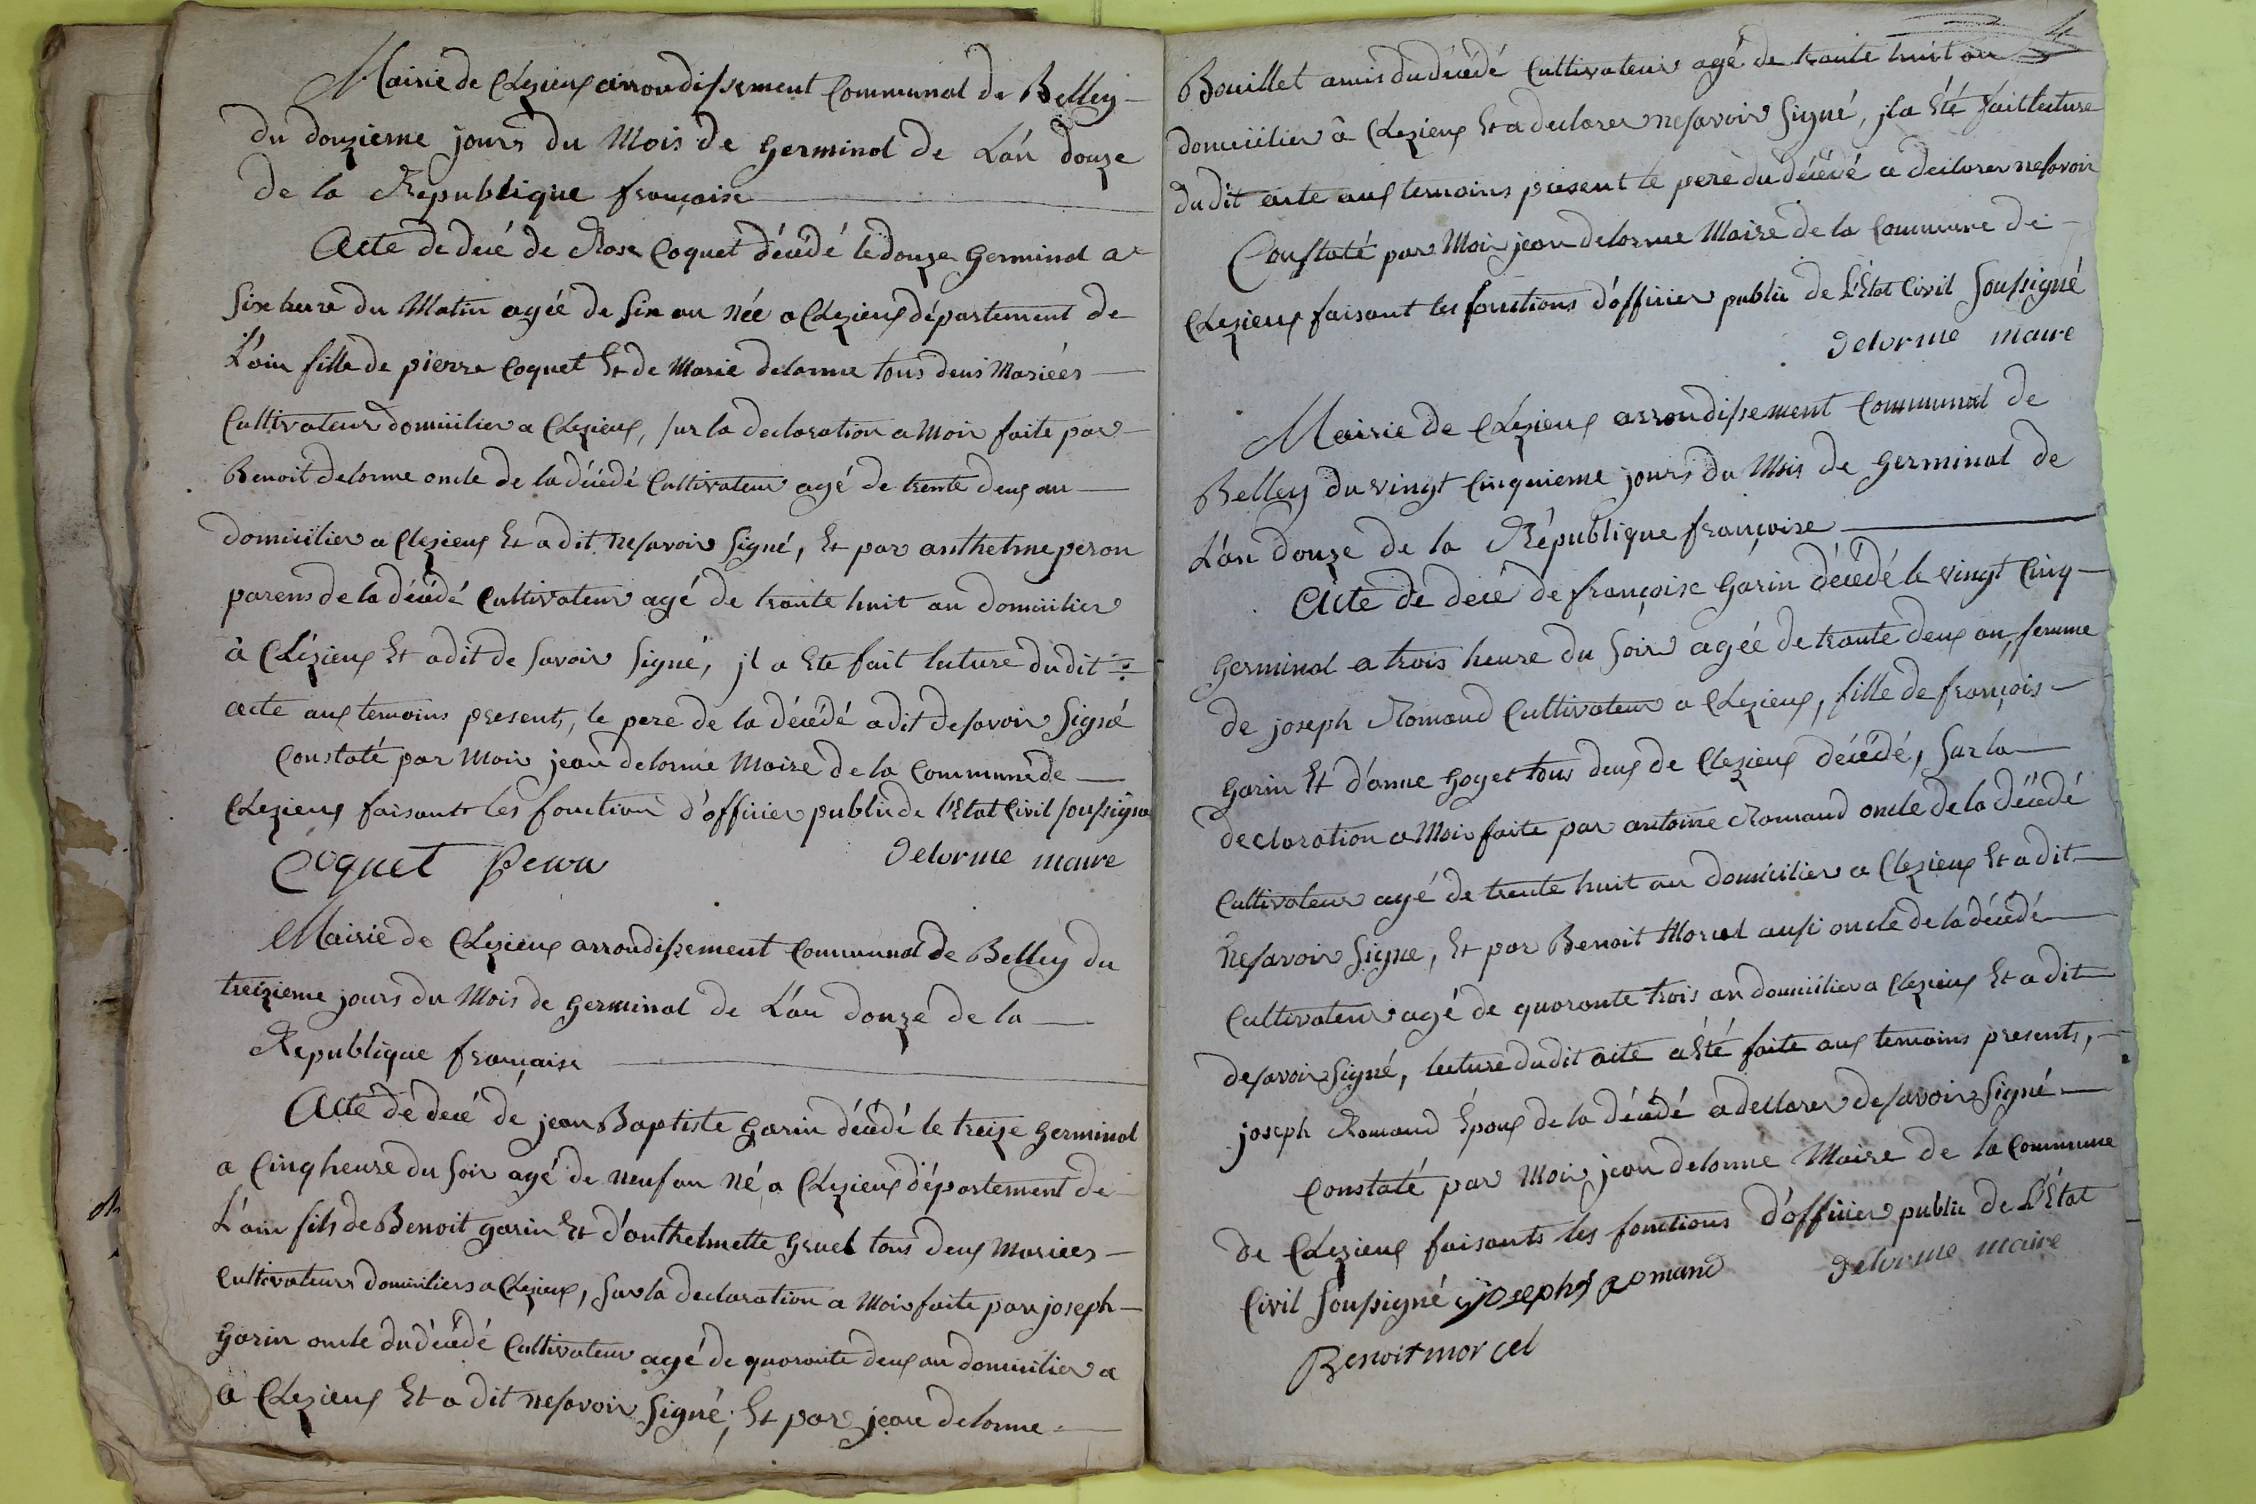 Mairie de Chezieux arrondissement Communal de Belley
du douzieme jours du Mois de Germinal de L'an douze
de la Republique françaisse
Acte de decé de Rose Coquet décédé le douze Germinal a
Six heure du Matin agée de Six an née a Chezieux département de
L'ain fille de pierre Coquet Et de Marie delorme tous deus Mariées
Cultivateur domicilier a Chezieux, sur la declaration a Moir faite par
Benoit delorme oncle de la décédé Cultivateur agé de trente deux an
domicilier a Chezieux Et a dit ne savoir Signé, Et par anthelme peron
parens de la décédé Cultivateur agé de trante huit an domicilier
à Chezieux Et a dit de savoir signé, jl a Ete fait luture du dit
acte aux temoins present, le pere de la décédé a dit de savoir Signé
Constaté par Moir jean delorme Maire de la Commune de
Chezieux faisant les fonction d'officier public de l'Etat Civil soussigné
Coquet Peron delorme maire
Mairie de Chezieux arrondissement Communal de Belley du
treizieme jours du Mois de Germinal de L'an douze de la
Republique française
Acte de decé de jean Baptiste Garin décédé le treize Germinal
a Cinq heure du Soir agé de neuf an Né a Chezieux département de
L'ain fils de Benoit garin Et d'anthelmette Gruel tous deux Mariees
Cultivateurs domiciliers a Chezieux, Sur la declaration a Moir faite par joseph
Garin oncle du décédé Cultivateur agé de quarante deux an domicilier a
a Chezieux Et a dit ne savoir Signé, Et par jean delorme
4
Bouillet amis du décédé Cultivateur agé de trante huit an
domicilier à Chezieux Et a declarer ne savoir Signé, jl a Eté fait luture
du dit acte aux temoins present le pere du décédé a declarer ne savoir
Constaté par Moir jean delorme Maire de la Commune de
Chezieux faisant les fonctions d'officier public de L'Etat Civil Soussigné
delorme maire
Mairie de Chezieux arrondissement Communal de
Belley du vingt Cinquieme jours du Mois de Germinal de
L'an douze de la République françoise
Acte de decé de françoise Garin décédé le vingt Cinq
Germinal a trois heure du Soir agée de trante deux an, femme
de joseph Romand Cultivateur a Chezieux, fille de françois
Garin Et d'anne Goget tous deux de Chezieux décédé, Sur la
declaration a Moir faite par antoine Romand oncle de la décédé
Cultivateur agé de trente huit an domicilier a Chezieux Et a dit
Ne savoir Signe, Et par Benoit Morcel aussi oncle de la décédé
Cultivateur agé de quaronte trois an domicilier a Chezieux Et a dit
de savoir Signé, lecture du dit acte a Eté faite aux temoins presents,
joseph Romand Époux de la décédé a declarer de savoir Signé
Constaté par Moir jean delorme Maire de la Commune
de Chezieux faisants les fonctions d'officier public de L'État
Civil Soussigné joseph Romand delorme maire
Benoit morcel